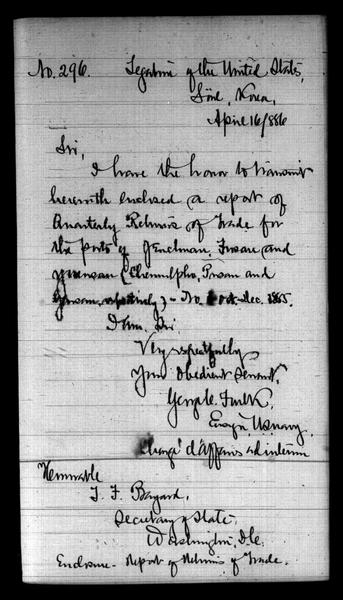 No. 296. Legation of the United States,
Söul, Korea,
April 16/886
Sir,
I have the honor to transmit
herewith enclosed a report of
Quarterly Returns of Trade for
the ports of Jenchuan, Fusan and
Yuensan (Chemulpho, Pusan and
Gensan, respectively) - No. Oct-Dec. 1885.
I am, Sir,
Very respectfully
Your obedient servant,
George C. Foulk,
Ensign, U.S. Navy.
Chargé d'Affaires ad interim
Honorable
T. F. Bayard,
Secretary of State,
Washington, D.C.
Enclosure - Report of Returns of Trade.